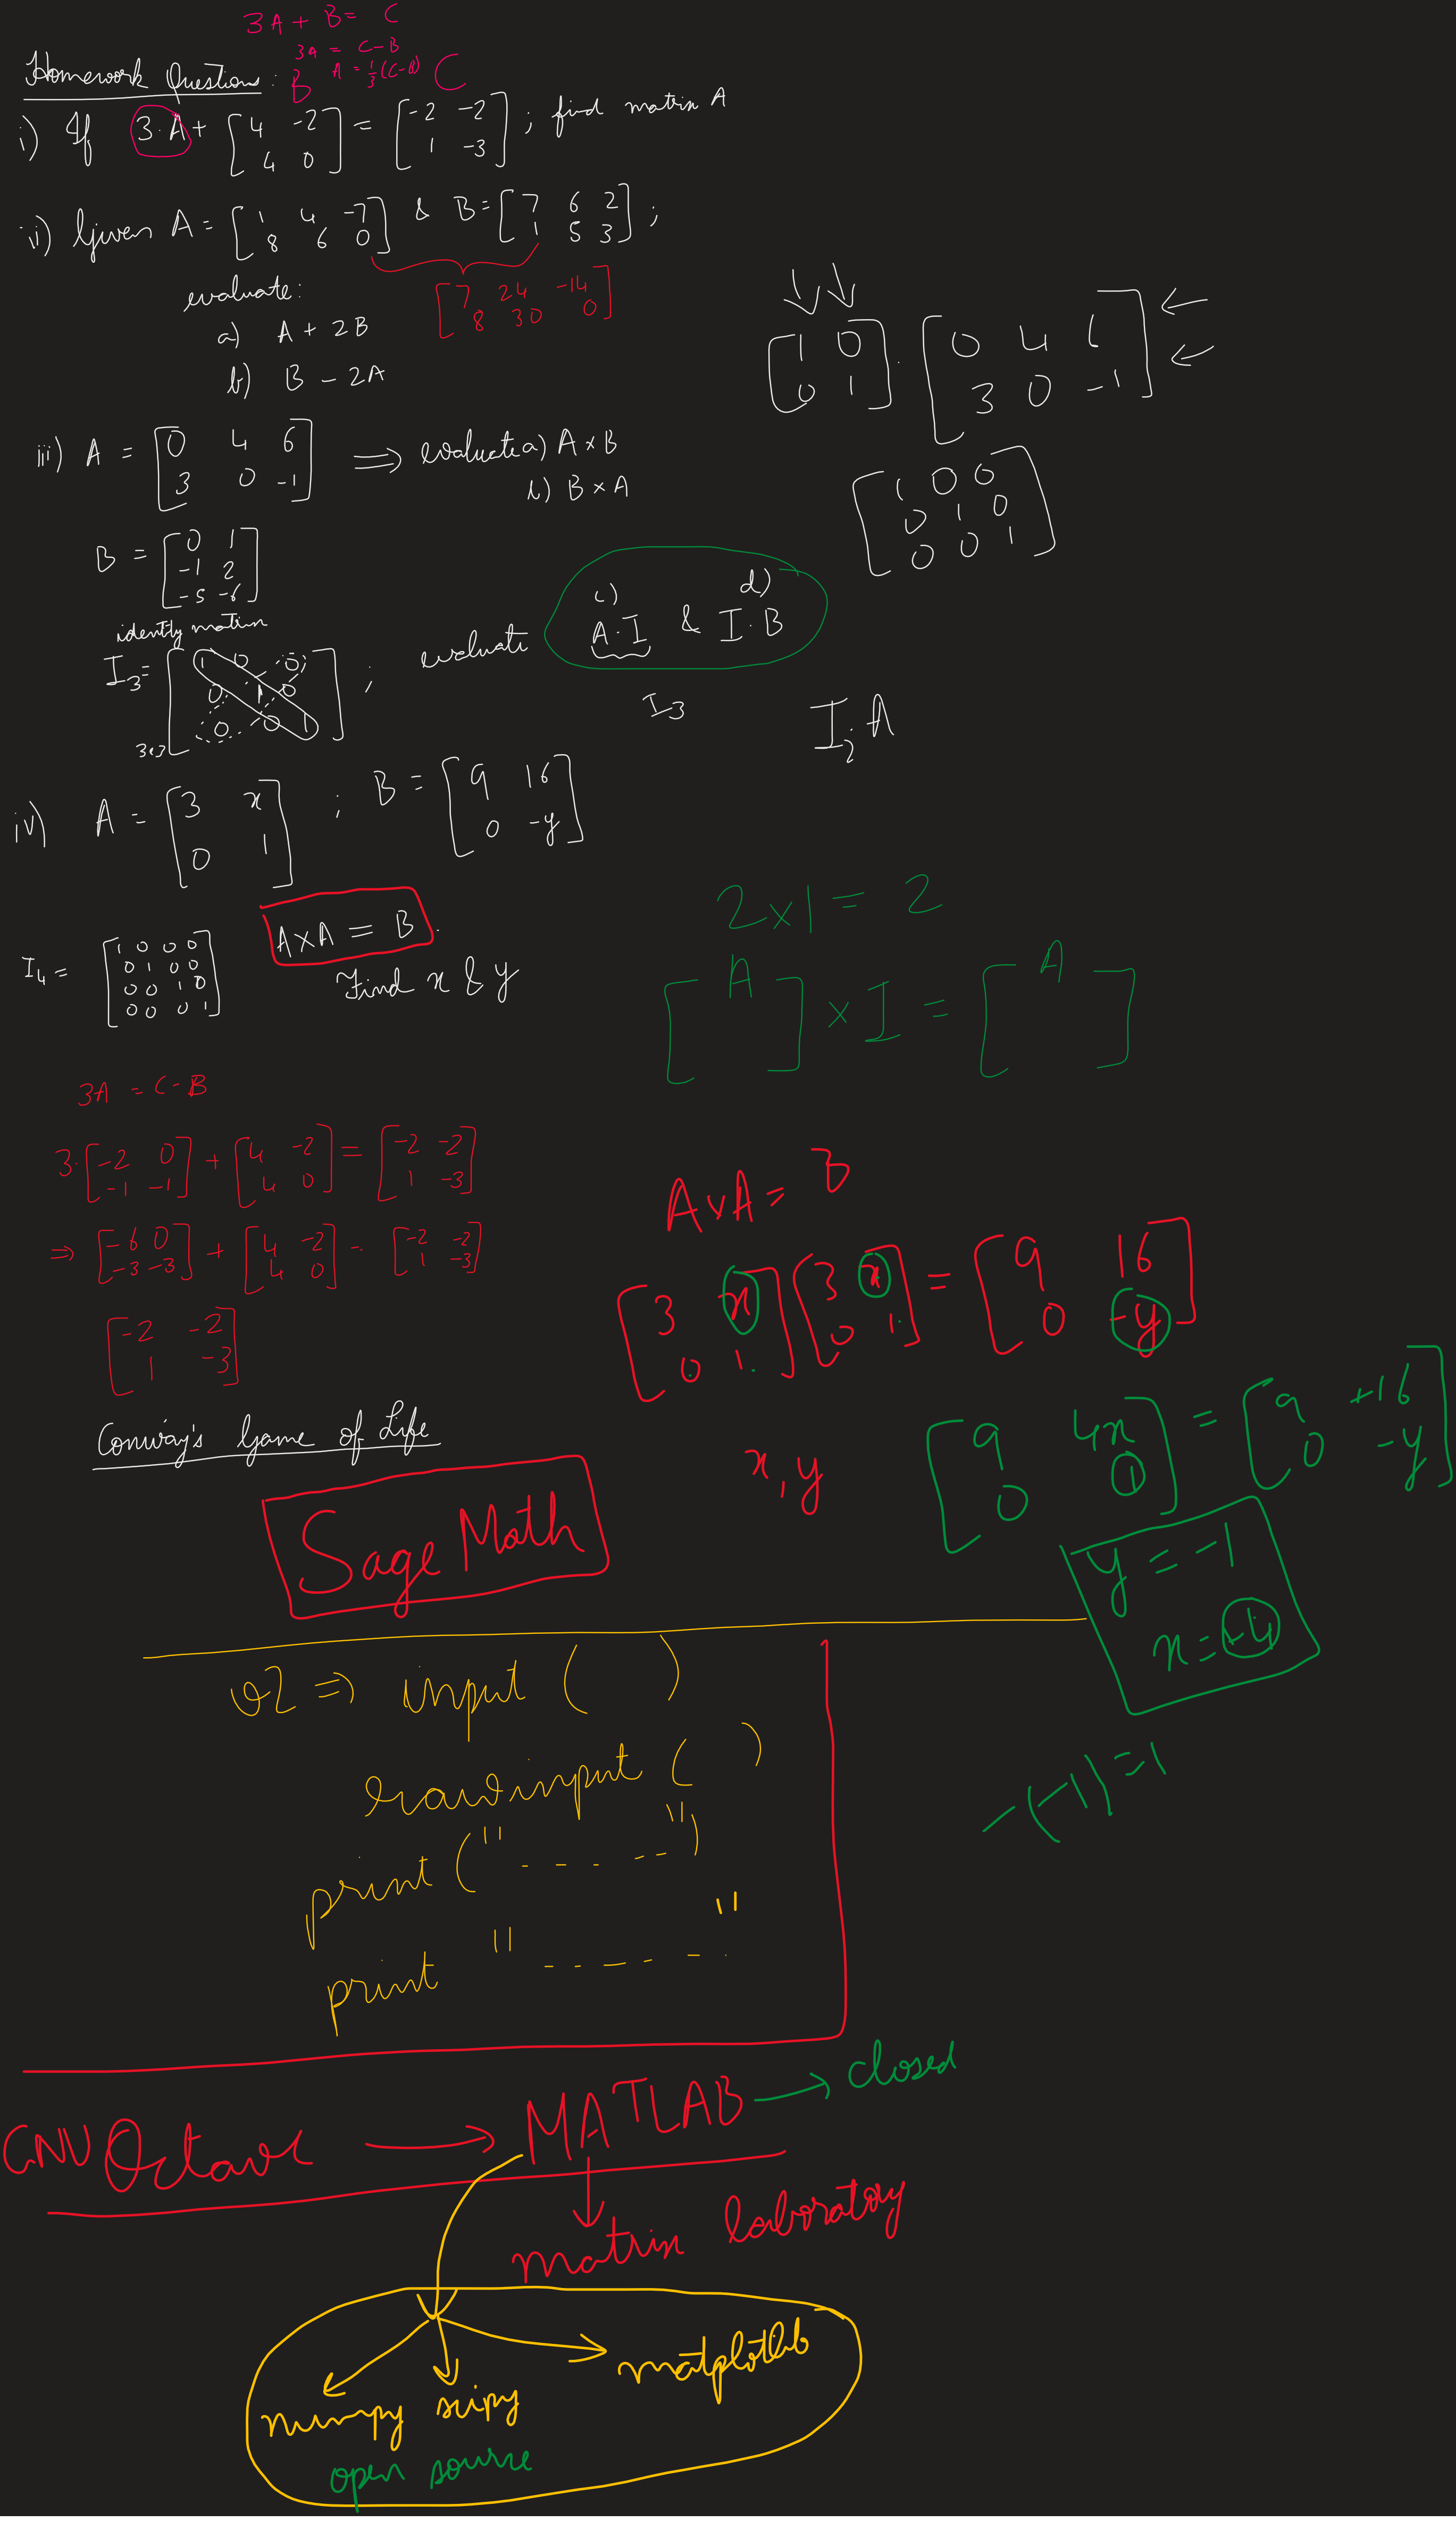 3A + B = C
3A = C - B
A = 1/3 (C-B)
Homework Questions :
B C
i) If 3·A + [4 -2; 4 0] = [-2 -2; 1 -3] ; find matrix A
ii) Given A = [1 4 -7; 8 6 0] & B = [7 6 2; 1 5 3] ;
evaluate:
[7 24 -14; 8 30 0]
a) A + 2B
b) B - 2A
[1 0; 0 1] · [0 4 6; 3 0 -1]
iii) A = [0 4 6; 3 0 -1] ⇒ evaluate a) A × B
b) B × A
[1 0 0; 0 1 0; 0 0 1]
B = [0 1; -1 2; -5 -6]
identity matrix
I3 = [1 0 0; 0 1 0; 0 0 1] ; evaluate c) A·I & d) I·B
3×3
I3
I2·A
iv) A = [3 x; 0 1] ; B = [9 16; 0 -y]
A×A = B.
Find x & y
I4 = [1 0 0 0; 0 1 0 0; 0 0 1 0; 0 0 0 1]
2×1 = 2
[A] × I = [A]
3A = C - B
3·[-2 0; -1 -1] + [4 -2; 4 0] = [-2 -2; 1 -3]
⇒ [-6 0; -3 -3] + [4 -2; 4 0] - [-2 -2; 1 -3]
[-2 -2; 1 -3]
A×A = B
[3 x; 0 1] [3 x; 0 1] = [9 16; 0 -y]
x, y
[9 4x; 0 1] = [9 +16; 0 -y]
y = -1
x = -4
-(-1) = 1
Conway's Game of Life
Sage Math
v2 ⇒ input ( )
rawinput ( )
print (" - - - - - ")
print " - - - - - - "
GNU Octave → MATLAB → closed
matrix laboratory
numpy scipy matplotlib
open source